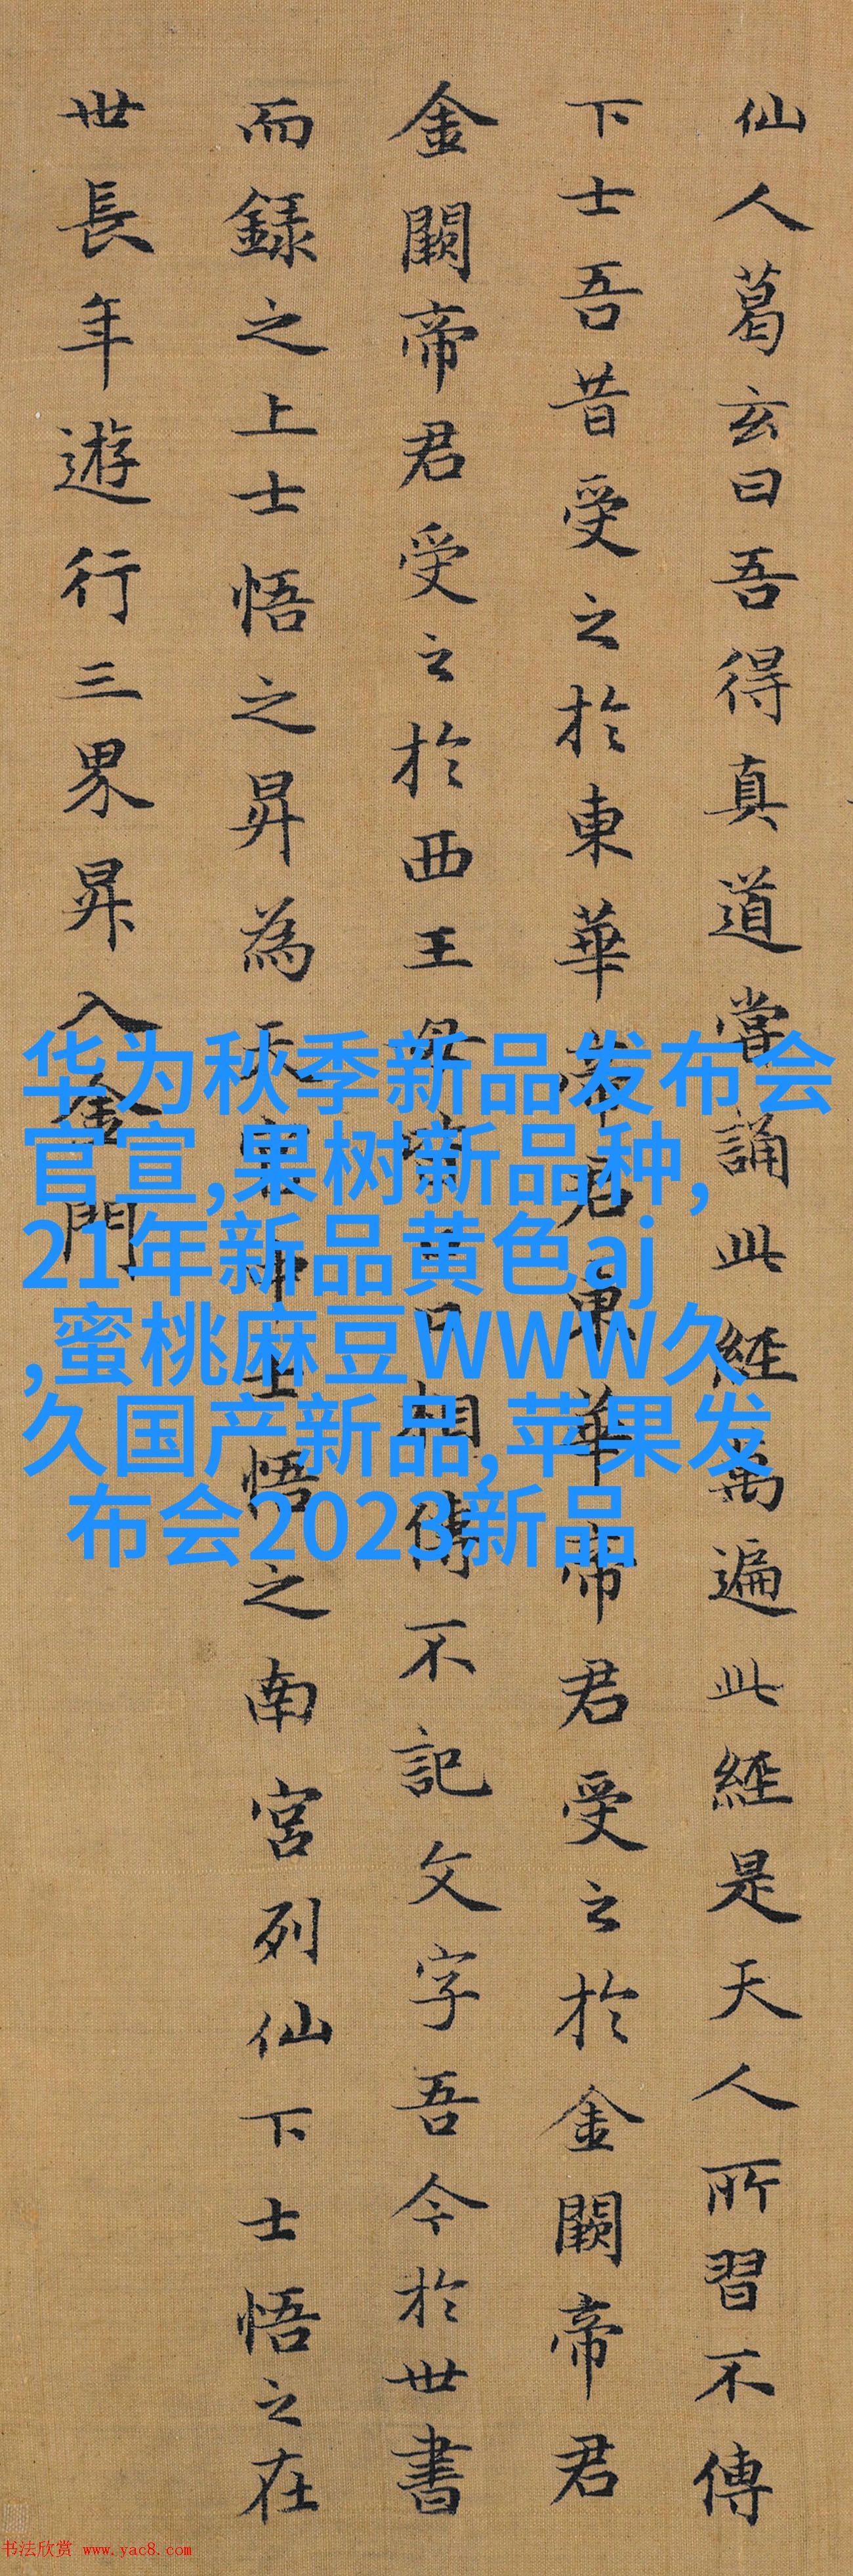 仙人葛玄曰吾得真道當誦此經萬遍此經是天人所習不傳
下士吾昔受之於東華帝君東華帝君受之於金闕帝君
金闕帝君受之於西王母皆口口相傳不記文字吾今於世書
而録之上士悟之昇為天官中士悟之南宮列仙下士悟之在
世長年遊行三界昇入金門
华为秋季新品发布会
官宣,果树新品种,
21年新品黄色aj
,蜜桃麻豆WWW久
久国产新品,苹果发
布会2023新品
书法欣赏 www.yac8.com